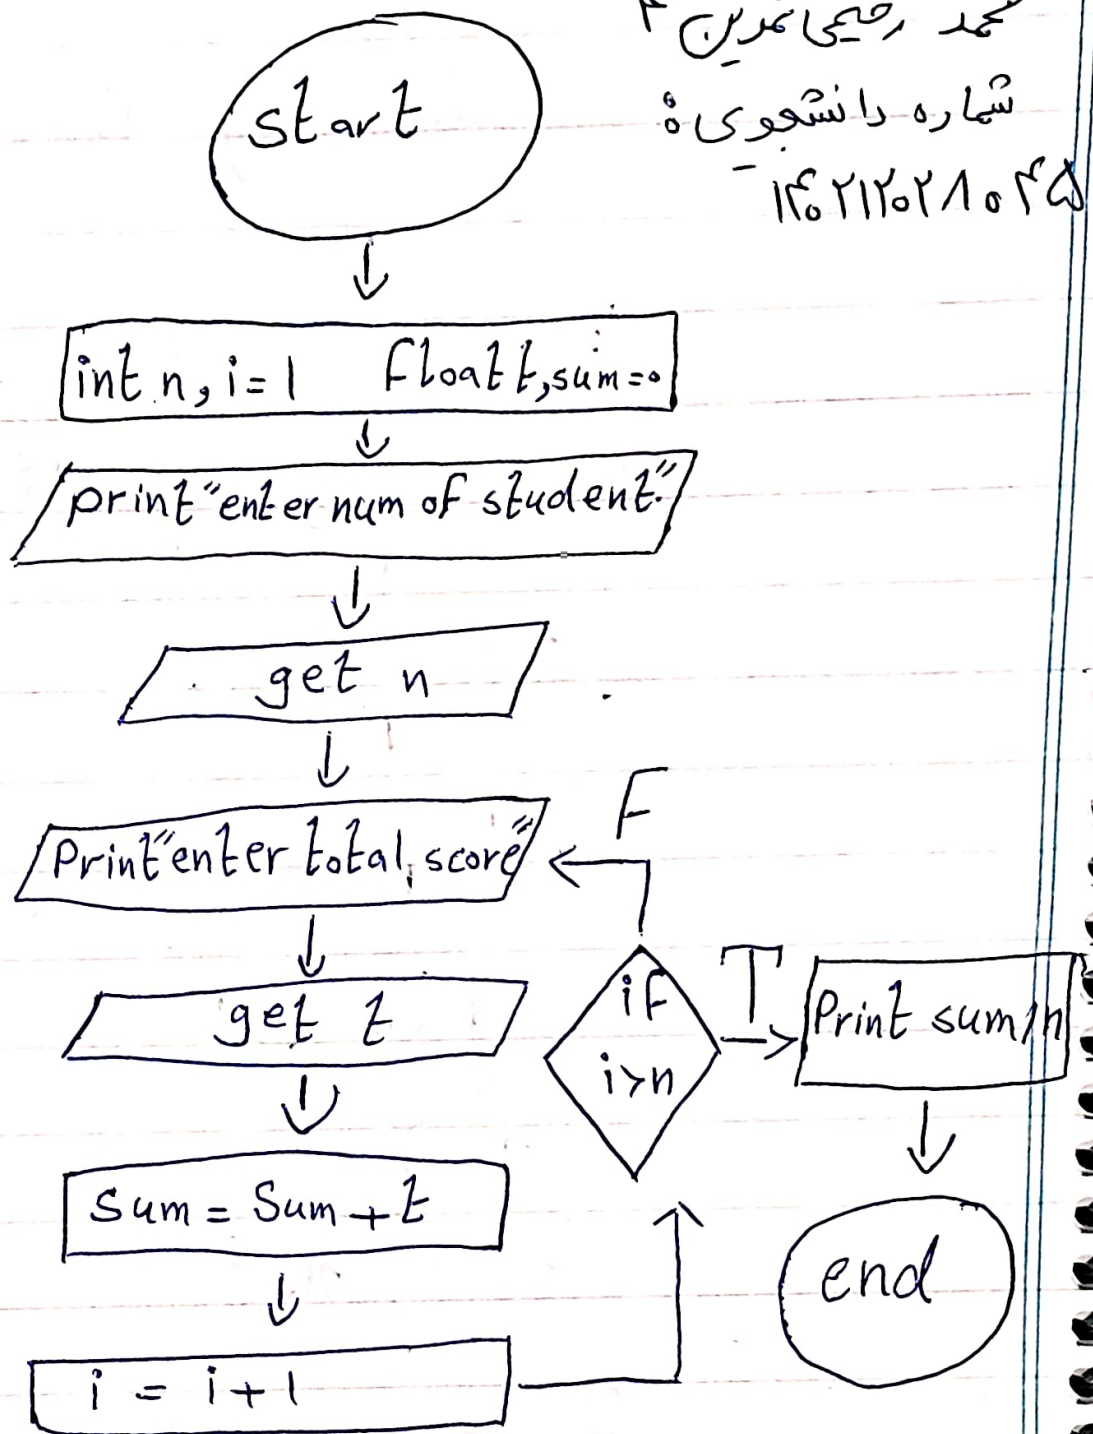 محمد رحیمی تمرین ۴
شماره دانشجویی:
۱۴۰۲۱۲۰۲۸۰۴۵
start
int n, i=1 float t, sum=0
print "enter num of student."
get n
Print "enter total score"
get t
sum = sum + t
i = i + 1
F
if
i>n
T
Print sum/n
end